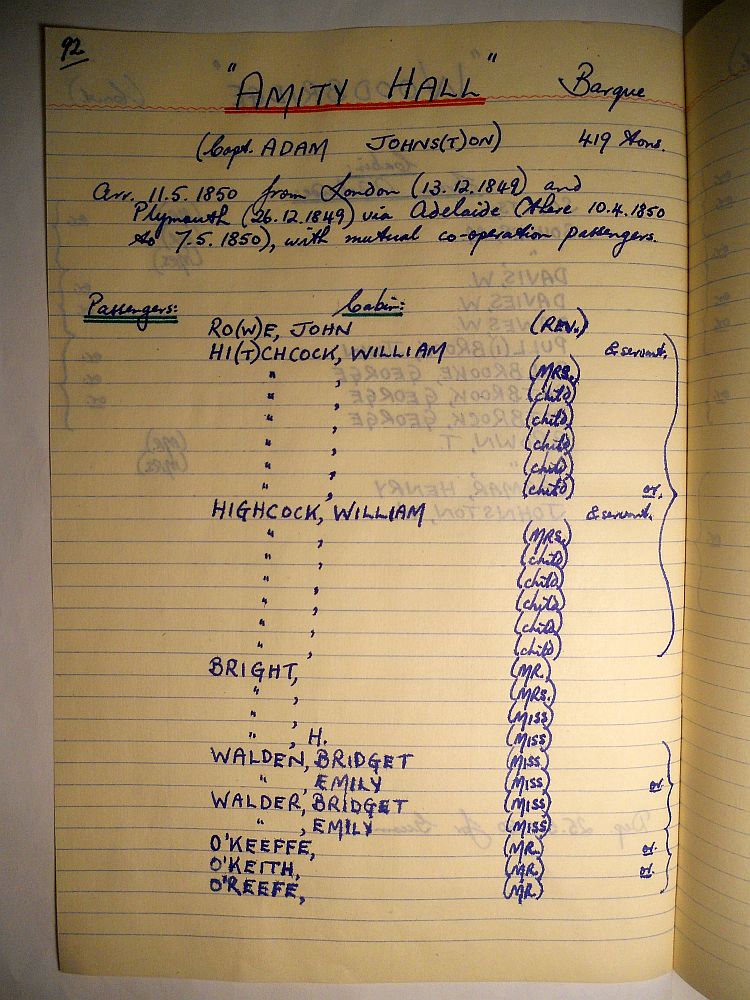 92
"AMITY HALL" Barque
(Capt. ADAM JOHNS(T)ON) 419 Tons.
Arr. 11.5.1850 from London (13.12.1849) and
Plymouth (26.12.1849) via Adelaide (there 10.4.1850
to 7.5.1850), with mutual co-operation passengers.
Passengers: Cabin:
RO(W)E, JOHN (REV.)
HI(T)CHCOCK, WILLIAM & servant.
" , (MRS.)
" , (child)
" , (child)
" , (child)
" , (child)
" , (child) or.
HIGHCOCK, WILLIAM & servant.
" , (MRS.)
" , (child)
" , (child)
" , (child)
" , (child)
" , (child)
BRIGHT, (MR.)
" , (MRS.)
" , (MISS)
" , H. (MISS)
WALDEN, BRIDGET (MISS)
" , EMILY (MISS) or.
WALDER, BRIDGET (MISS)
" , EMILY (MISS)
O'KEEFFE, (MR.) or.
O'KEITH, (MR.) or.
O'REEFE, (MR.)